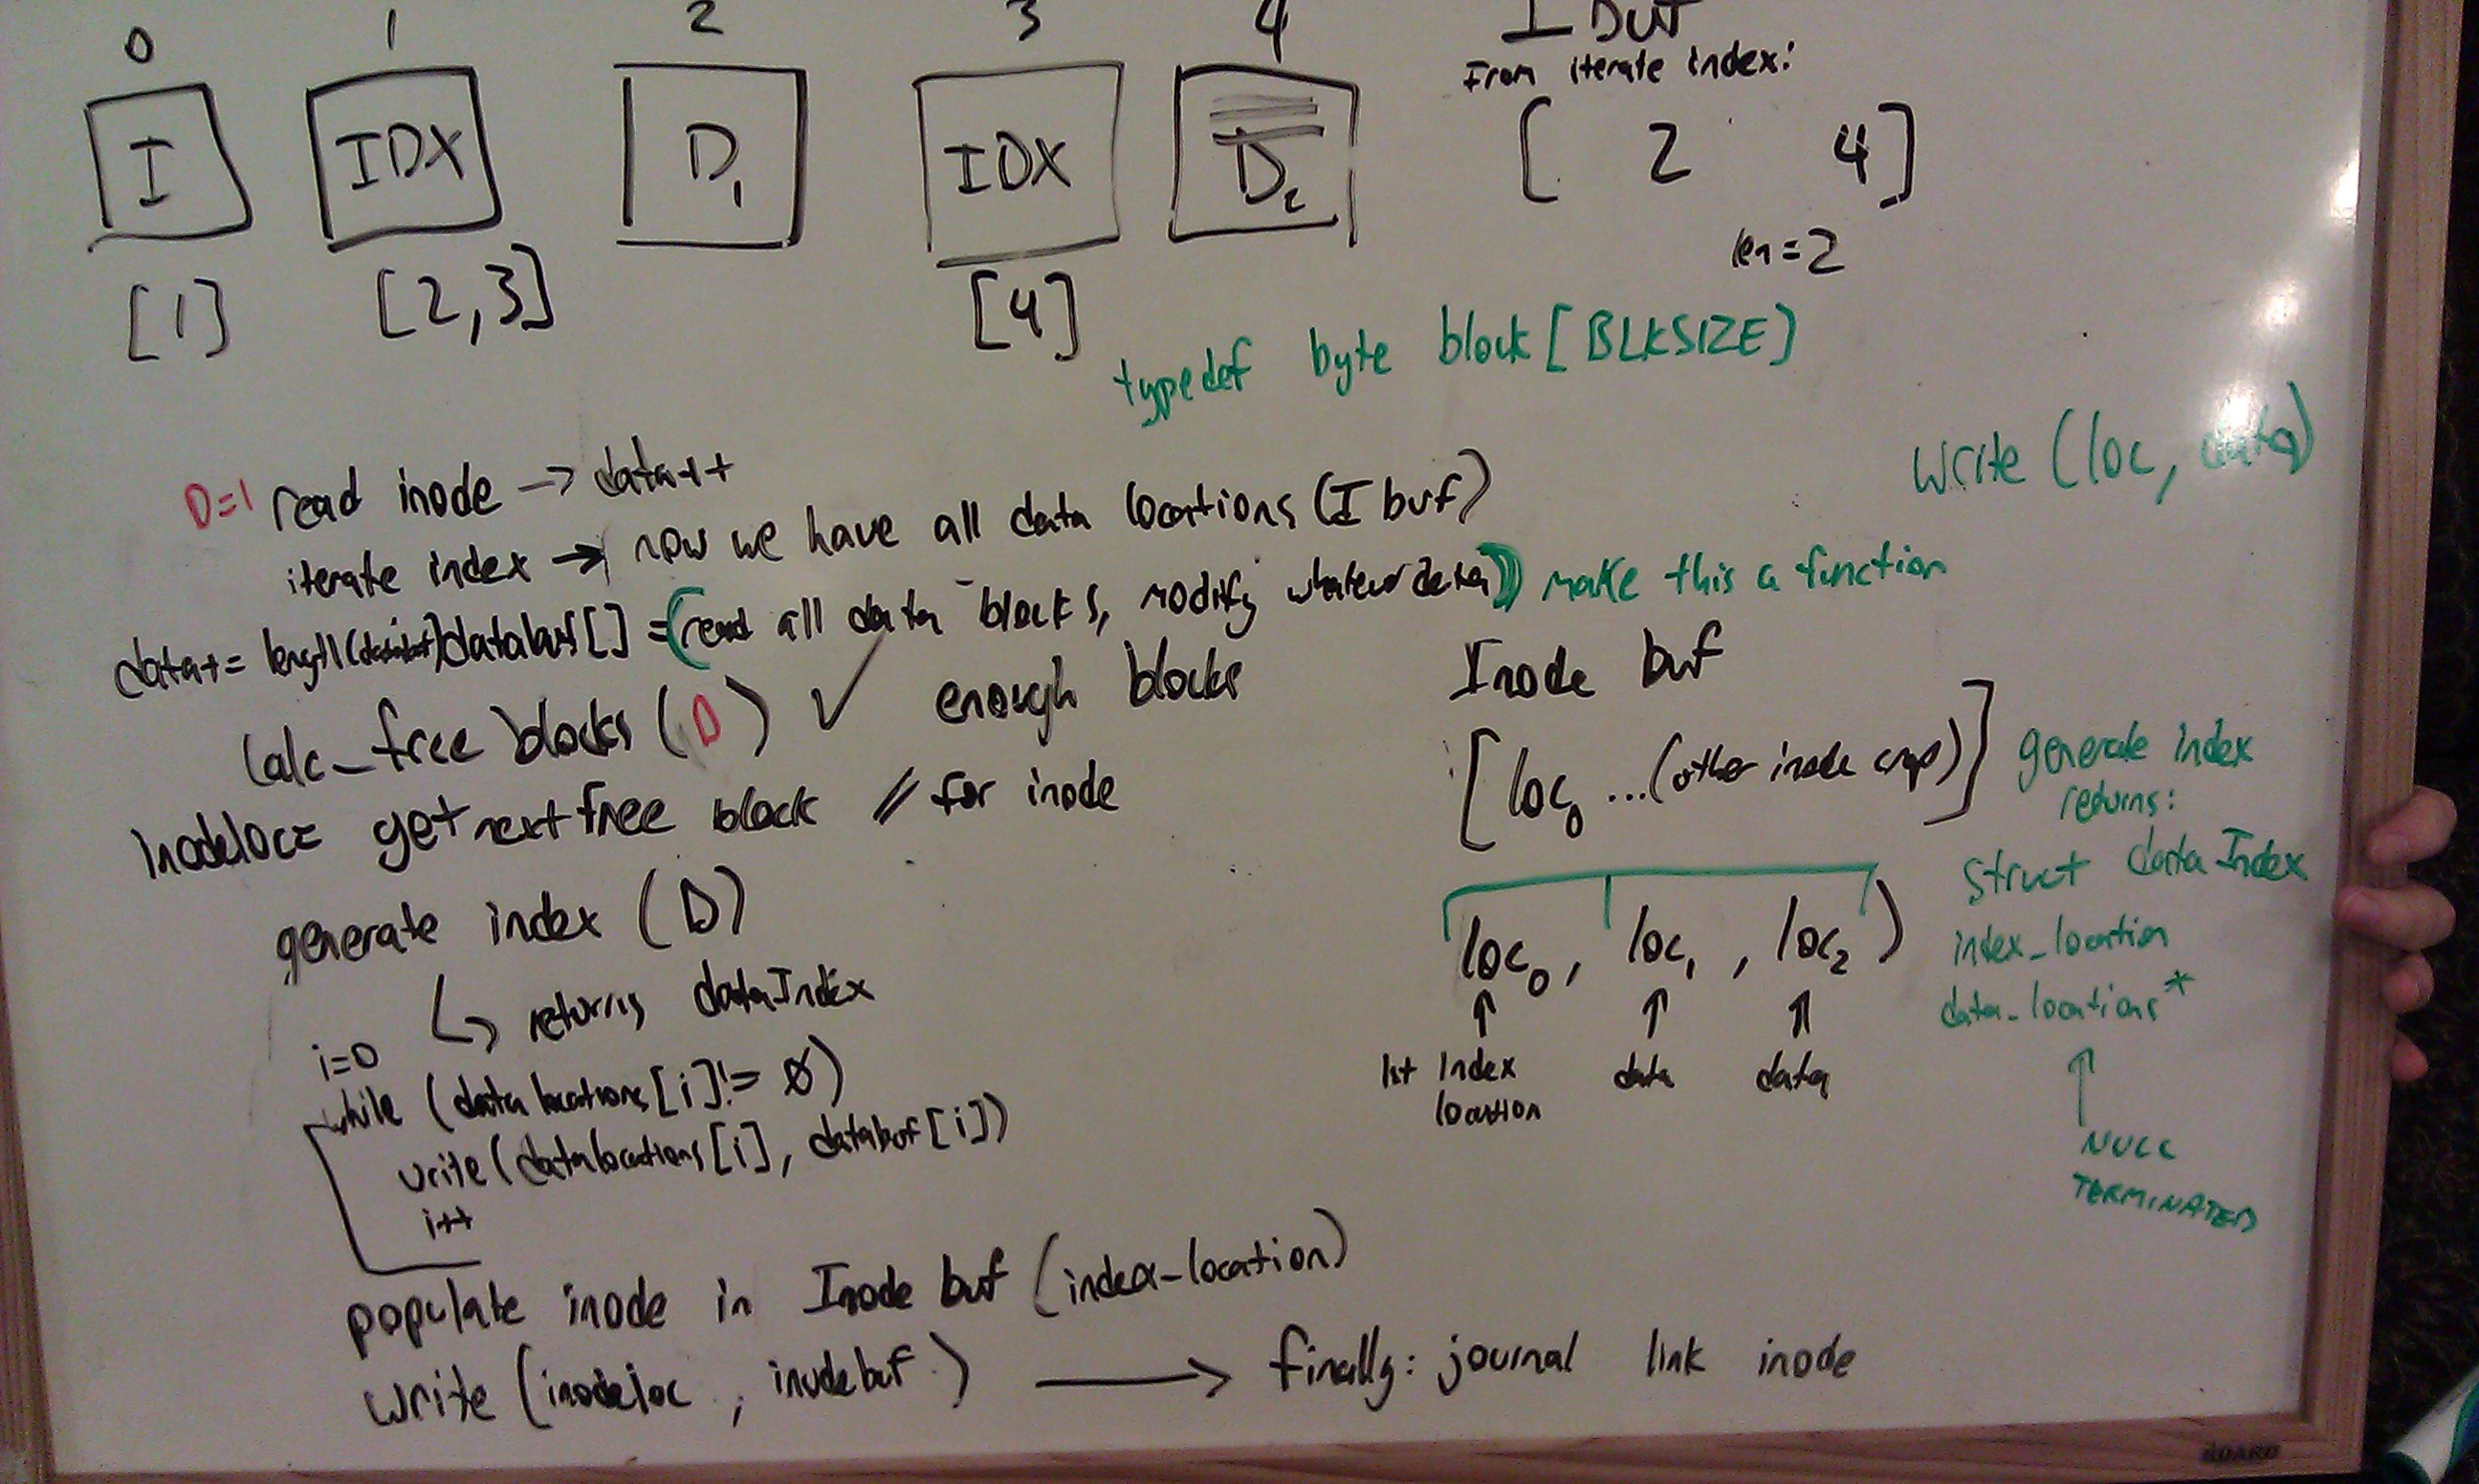 0 1 2 3 4
I IDX D₁ IDX D₂
[1] [2,3] [4]
I buf
From iterate index:
[ 2 4 ]
len = 2
typedef byte block [BLKSIZE]
write (loc, data)
D=1 read inode → data++
iterate index → now we have all data locations (I buf)
data+= length(databuf) databuf[] = (read all data blocks, modify whatever data) make this a function
calc_free blocks (D) ✓ enough blocks
inodeloc= get next free block // for inode
generate index (D)
↳ returns dataIndex
i=0
while (data locations[i] != 0)
write(datalocations[i], databuf[i])
i++
populate inode in Inode buf (index-location)
write (inodeloc, inodebuf) → finally: journal link inode
Inode buf
[loc₀ ...(other inode crap)]
loc₀, loc₁, loc₂)
↑ ↑ ↑
1st index location
data
data
generate index
returns:
struct dataIndex
index_location
data_locations*
↑
NULL
TERMINATED
BOARD